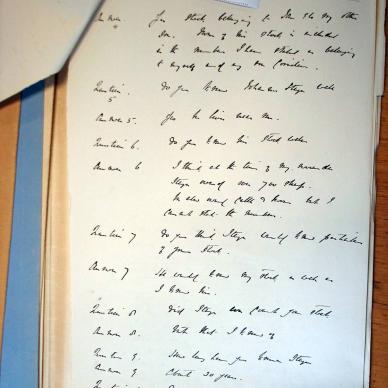 Answer Yes stock belonging to
Son. None of his stock is included
in the number I have stated as belonging
to myself and my son Cornelius.
Question Do you know Johannes Steyn well
5
Answer 5. Yes he lives near me.
Question 6. Do you know his stock
Answer 6 I think at the time of my surrender
Steyn owned some sheep.
He also owned cattle & horses but I
cannot state the number.
Question 7 Do you think Steyn would know particulars
of your stock.
Answer 7 He would know my stock as well as
I knew his.
Question 8 Did Steyn ever your stock
Answer 8. Not that I know of
Question 9. How long have you known Steyn
Answer 9 About 30 years.